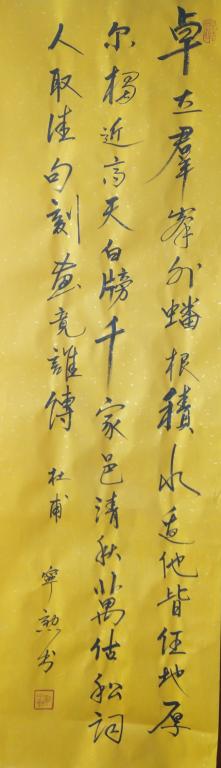 卓立羣峯外蟠根積水邊他皆任地厚
尔獨近高天白牓千家邑清秋萬估船詞
人取佳句刻畫竟誰傳 杜甫 寧勲书